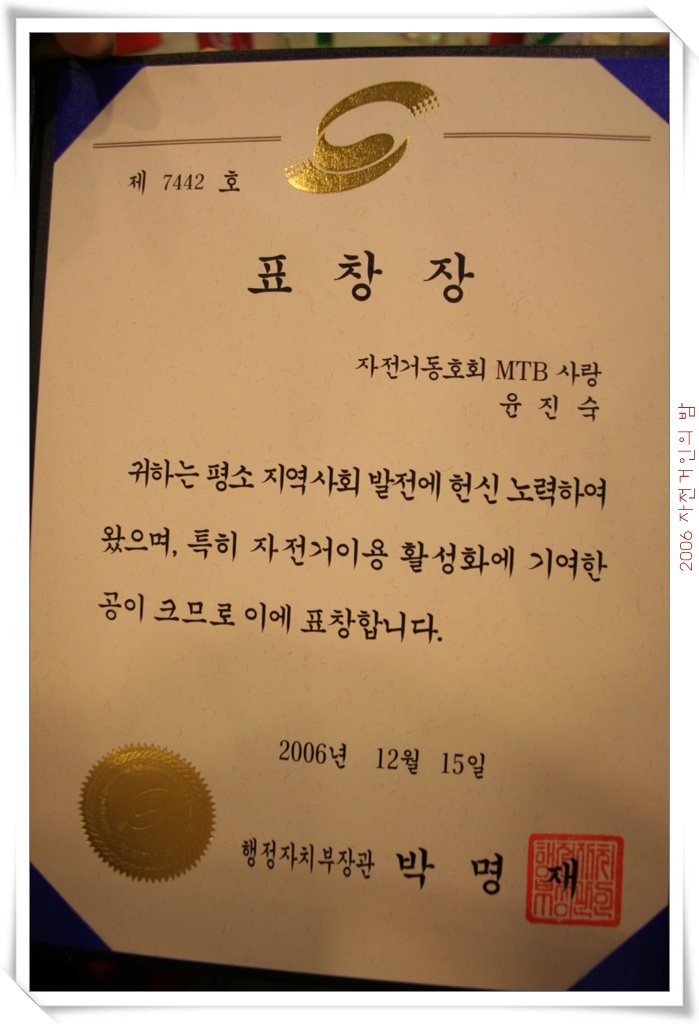 제 7442 호
표 창 장
자전거동호회 MTB 사랑
윤 진 숙
귀하는 평소 지역사회 발전에 헌신 노력하여
왔으며, 특히 자전거이용 활성화에 기여한
공이 크므로 이에 표창합니다.
2006년 12월 15일
행정자치부장관 박 명 재
2006 자전거인의 밤